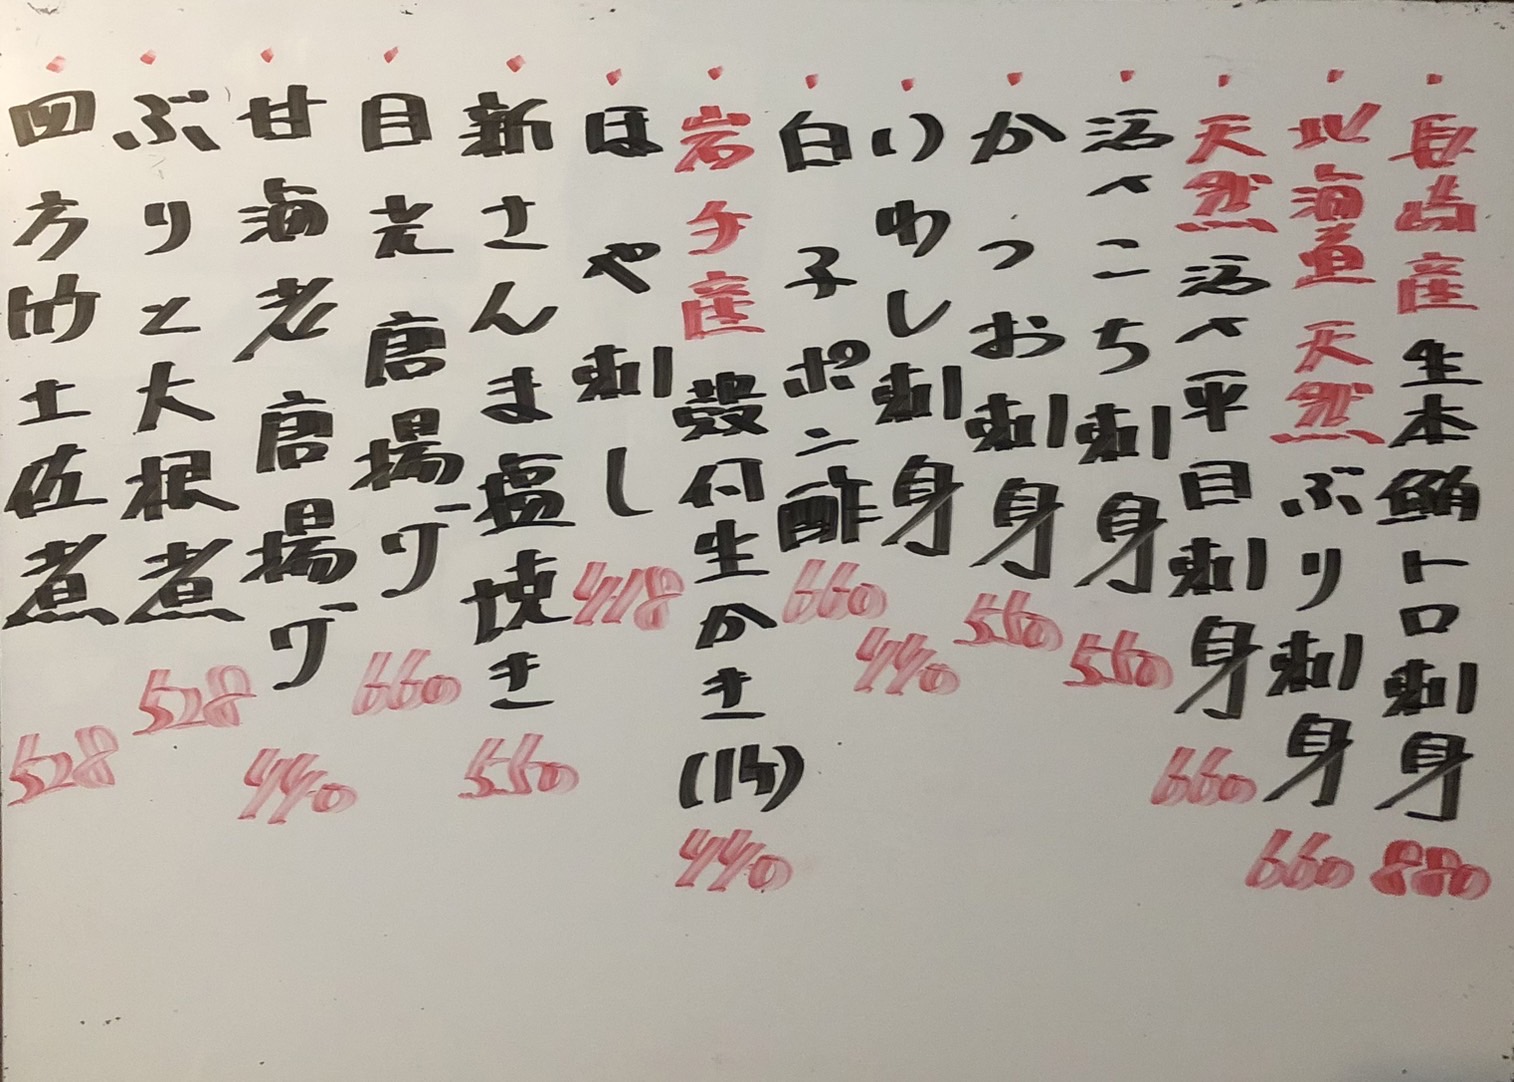 長崎産生本鮪トロ刺身 880
北海道天然ぶり刺身 660
天然活〆平目刺身 660
活〆こち刺身 550
かつお刺身 550
いわし刺身 440
白子ポン酢 660
岩手産殻付生かき(1ケ) 440
ほや刺し 418
新さんま塩焼き 550
目光唐揚げ 660
甘海老唐揚げ 440
ぶりと大根煮 528
四方竹土佐煮 528